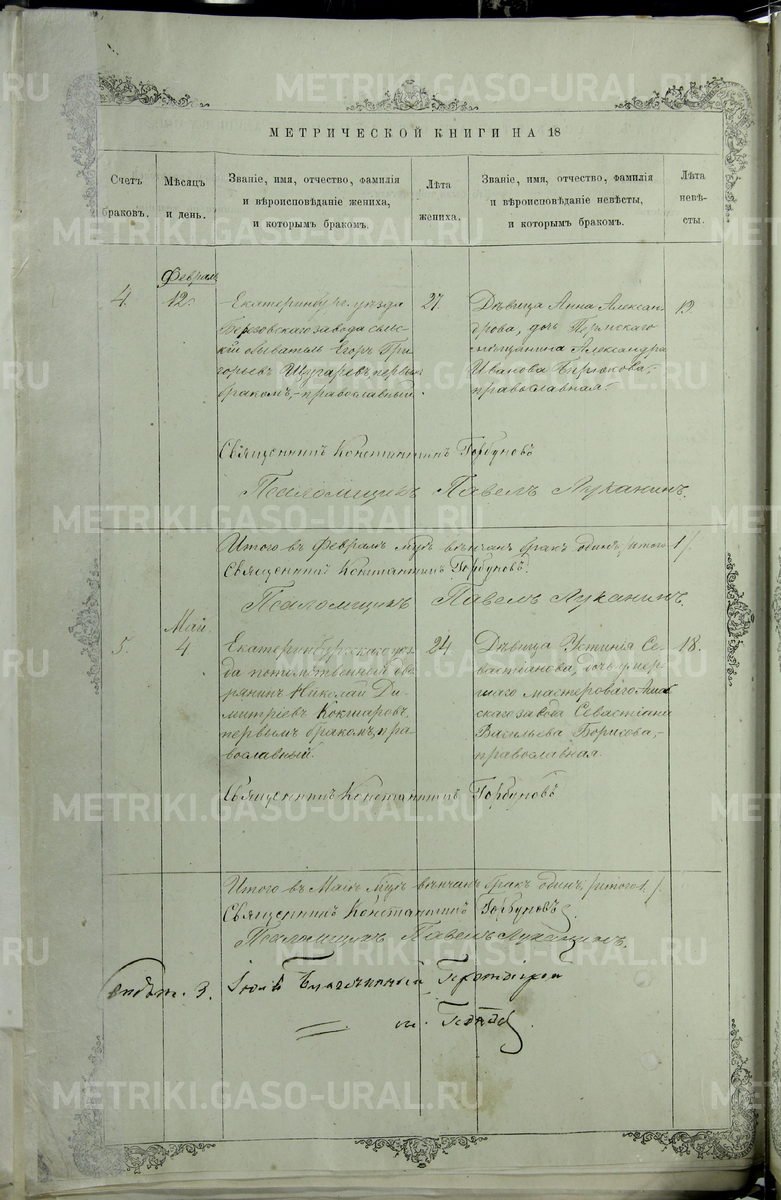 METRIKI.GASO-URAL.RU
МЕТРИЧЕСКОЙ КНИГИ НА 18
Счетъ браковъ.
Мѣсяцъ и день.
Званіе, имя, отчество, фамилія
и вѣроисповѣданіе жениха,
и которымъ бракомъ.
Лѣта жениха.
Званіе, имя, отчество, фамилія
и вѣроисповѣданіе невѣсты,
и которымъ бракомъ.
Лѣта невѣсты.
4.
Февраль
12.
Екатеринбург. уѣзда
Березовскаго завода сель-
скій обыватель Егоръ Гри-
горьевъ первымъ
бракомъ, православный.
27.
Дѣвица Анна Алексан-
дрова, дочь Пермскаго
мѣщанина Александра
Иванова Бирюкова,-
православная.
19.
Священникъ Константинъ Горбуновъ
Псаломщикъ Павелъ Луканинъ.
Итого въ Февралѣ м-цѣ вѣнчанъ бракъ одинъ /итого 1/.
Священникъ Константинъ Горбуновъ.
Псаломщикъ Павелъ Луканинъ.
5.
Май.
4
Екатеринбургскаго уѣз-
да потомственный дво-
рянинъ Николай Ди-
митріевъ Кокшаровъ,
первымъ бракомъ, пра-
вославный.
24.
Дѣвица Устинія Се-
вастіанова, дочь умер-
шаго мастероваго
скаго завода Севастіана
Васильева Борисова,-
православная.
18.
Священникъ Константинъ Горбуновъ
Итого въ Маѣ м-цѣ вѣнчанъ бракъ одинъ /итого 1./.
Священникъ Константинъ Горбуновъ.
Псаломщикъ Павелъ Луканинъ.
3. Іюля Благочинный Протоіерей